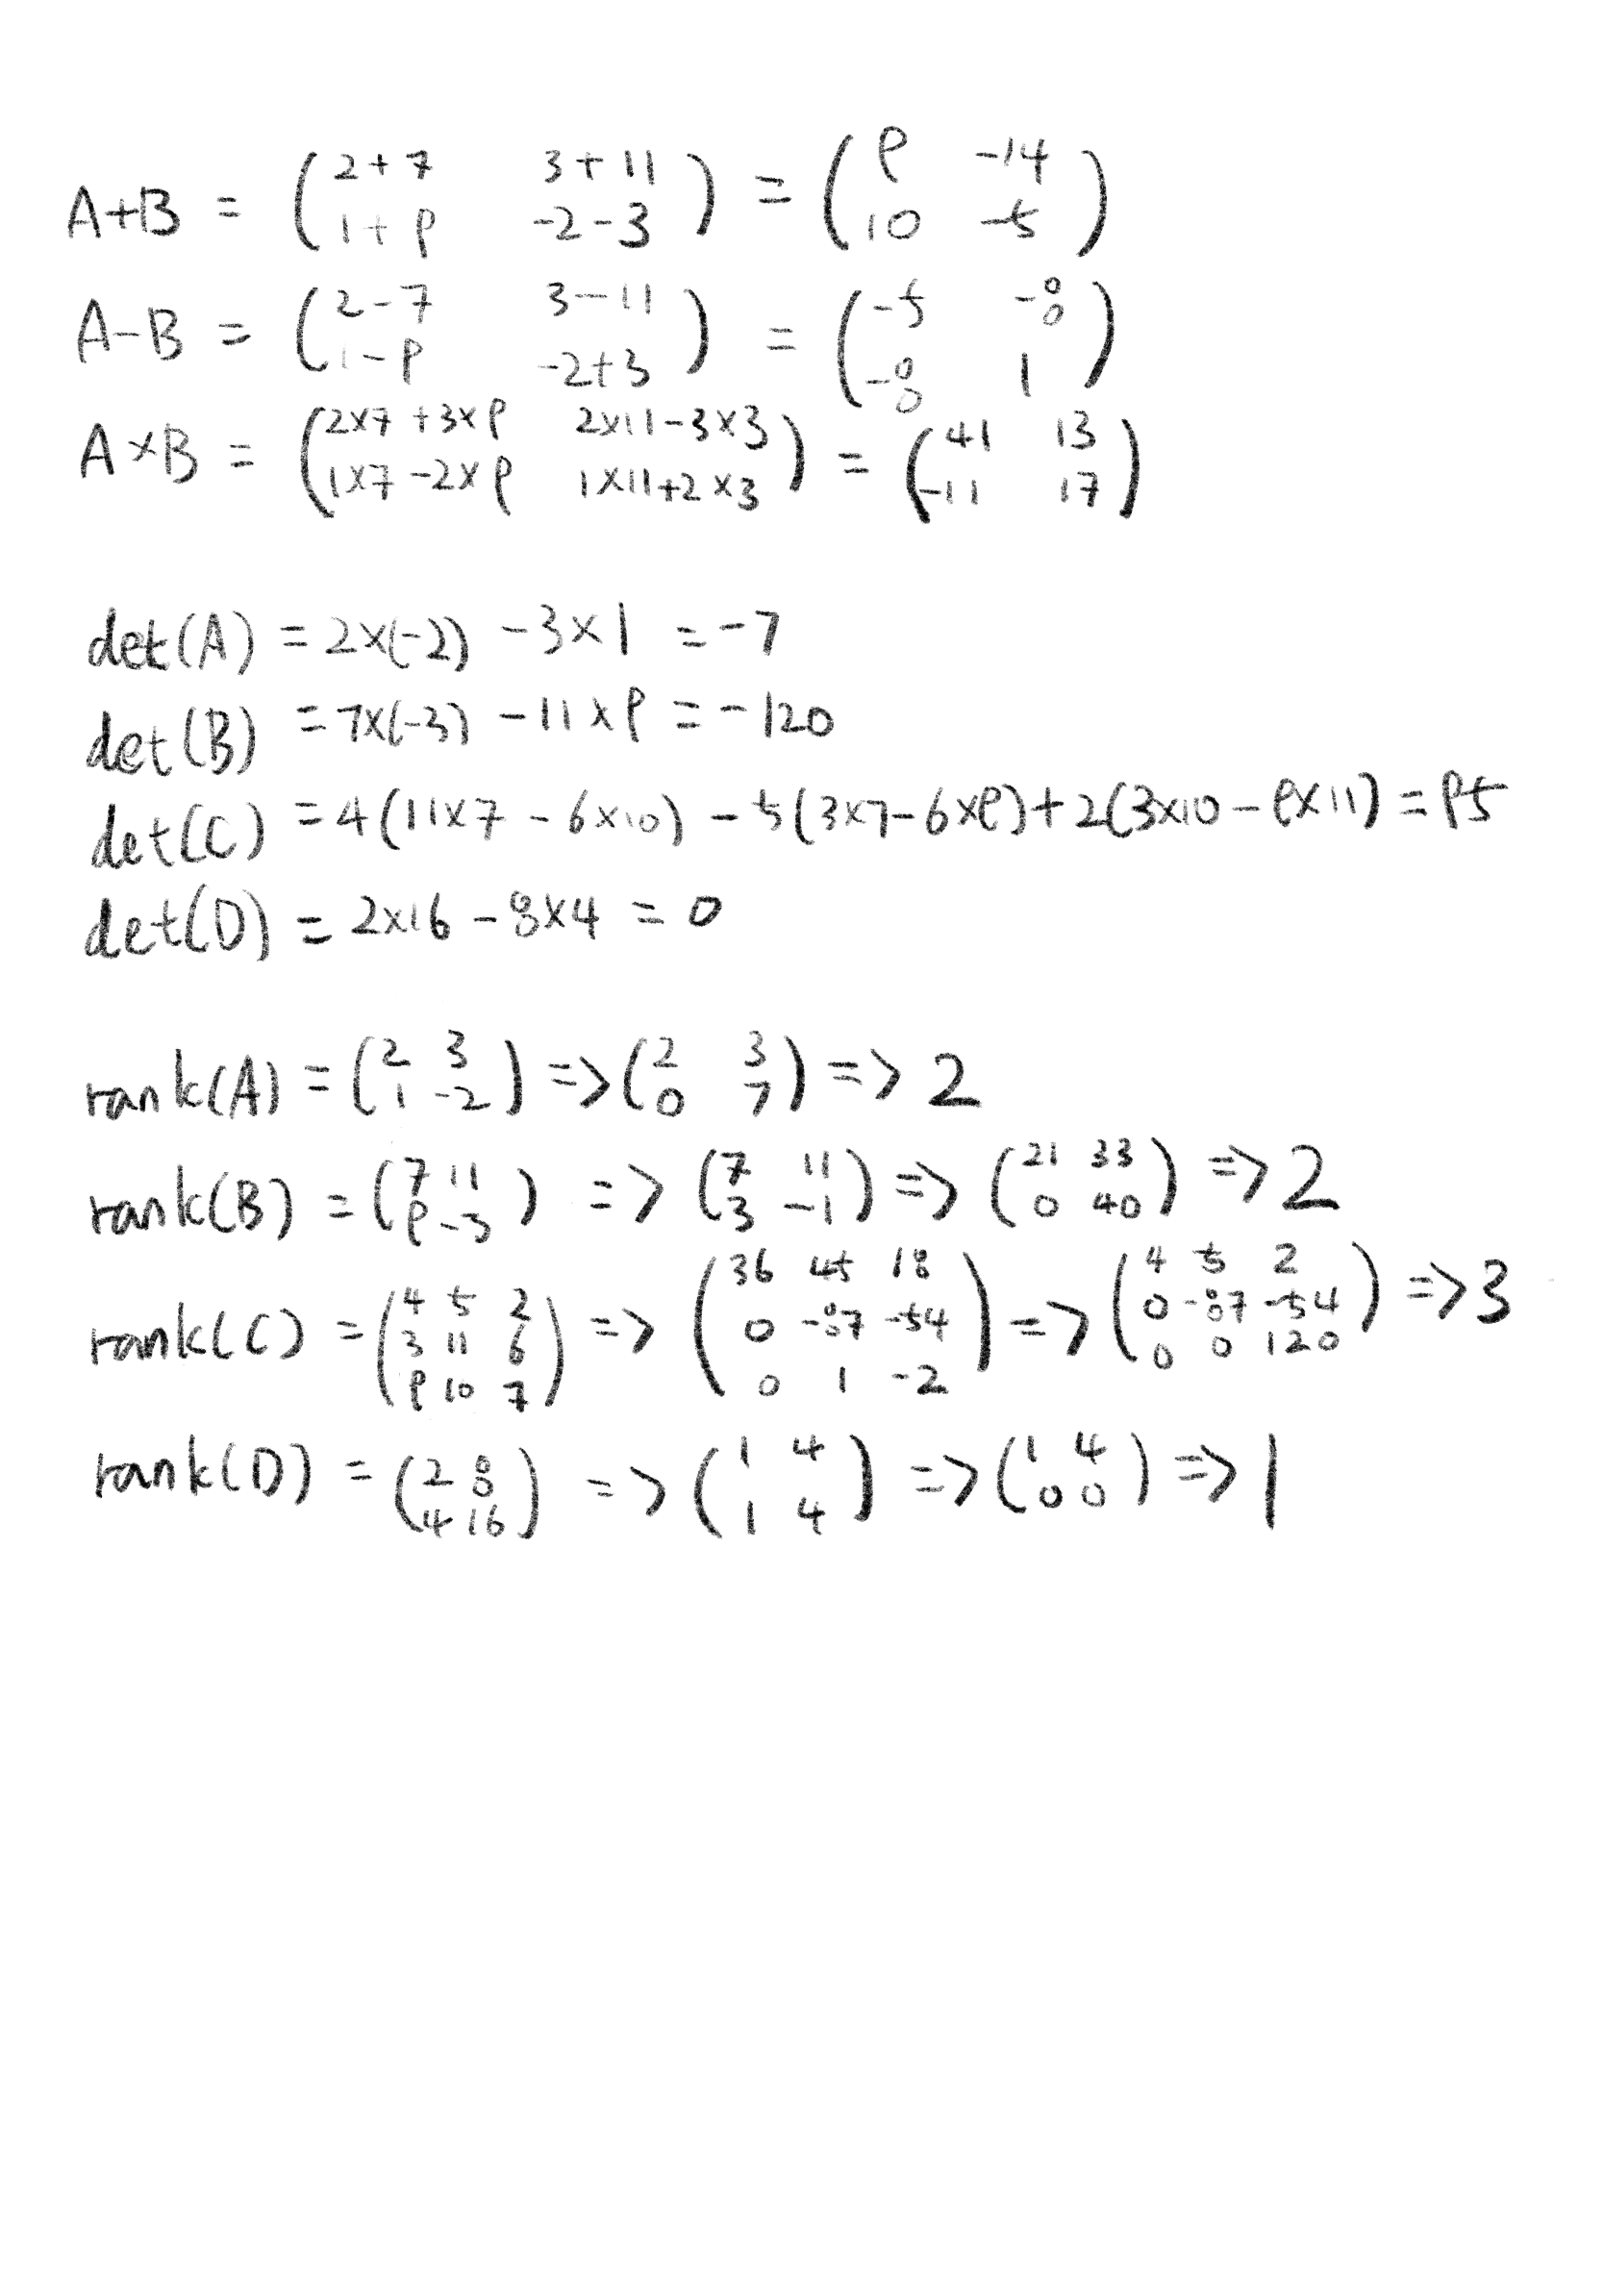 A+B = (2+7 3+11; 1+9 -2-3) = (9 -14; 10 -5)
A-B = (2-7 3-11; 1-9 -2+3) = (-5 -8; -8 1)
A×B = (2×7+3×9 2×11-3×3; 1×7-2×9 1×11+2×3) = (41 13; -11 17)
det(A) = 2×(-2) -3×1 = -7
det(B) = 7×(-3) -11×9 = -120
det(C) = 4(11×7 - 6×10) - 5(3×7-6×9)+2(3×10-9×11) = 95
det(D) = 2×16 - 8×4 = 0
rank(A) = (2 3; 1 -2) => (2 3; 0 7) => 2
rank(B) = (7 11; 9 -3) => (7 11; 3 -1) => (21 33; 0 40) => 2
rank(C) = (4 5 2; 3 11 6; 9 10 7) => (36 45 18; 0 -87 -54; 0 1 -2) => (4 5 2; 0 -87 -54; 0 0 120) => 3
rank(D) = (2 8; 4 16) => (1 4; 1 4) => (1 4; 0 0) => 1